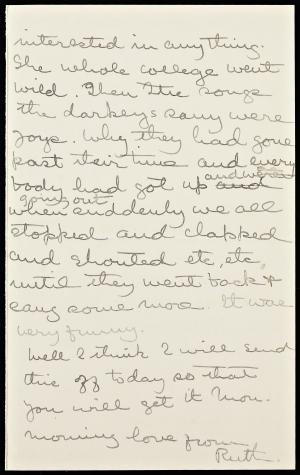 interested in anything.
The whole college went
wild. Then the songs
the darkeys sang were
joys. Why they had gone
past their time and every
and were
body had got up and
going out
when suddenly we all
stopped and clapped
and shouted etc, etc,
until they went back &
sang some more. It was
very funny.
Well I think I will send
this off today so that
you will get it Mon.
morning love from
Ruth.